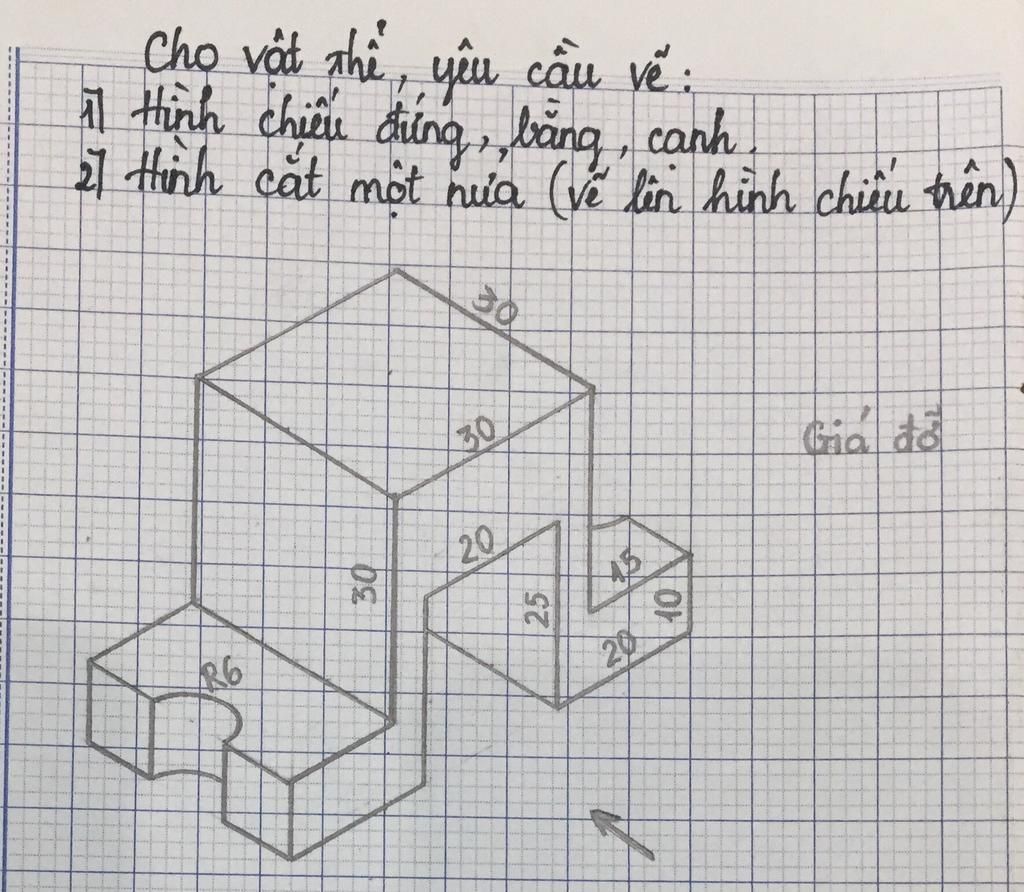 Cho vật thể, yêu cầu vẽ:
1) Hình chiếu đứng, bằng, cạnh.
2) Hình cắt một nửa (vẽ lên hình chiếu trên)
30
30
Giá đỡ
20
30
25
15
10
20
R6